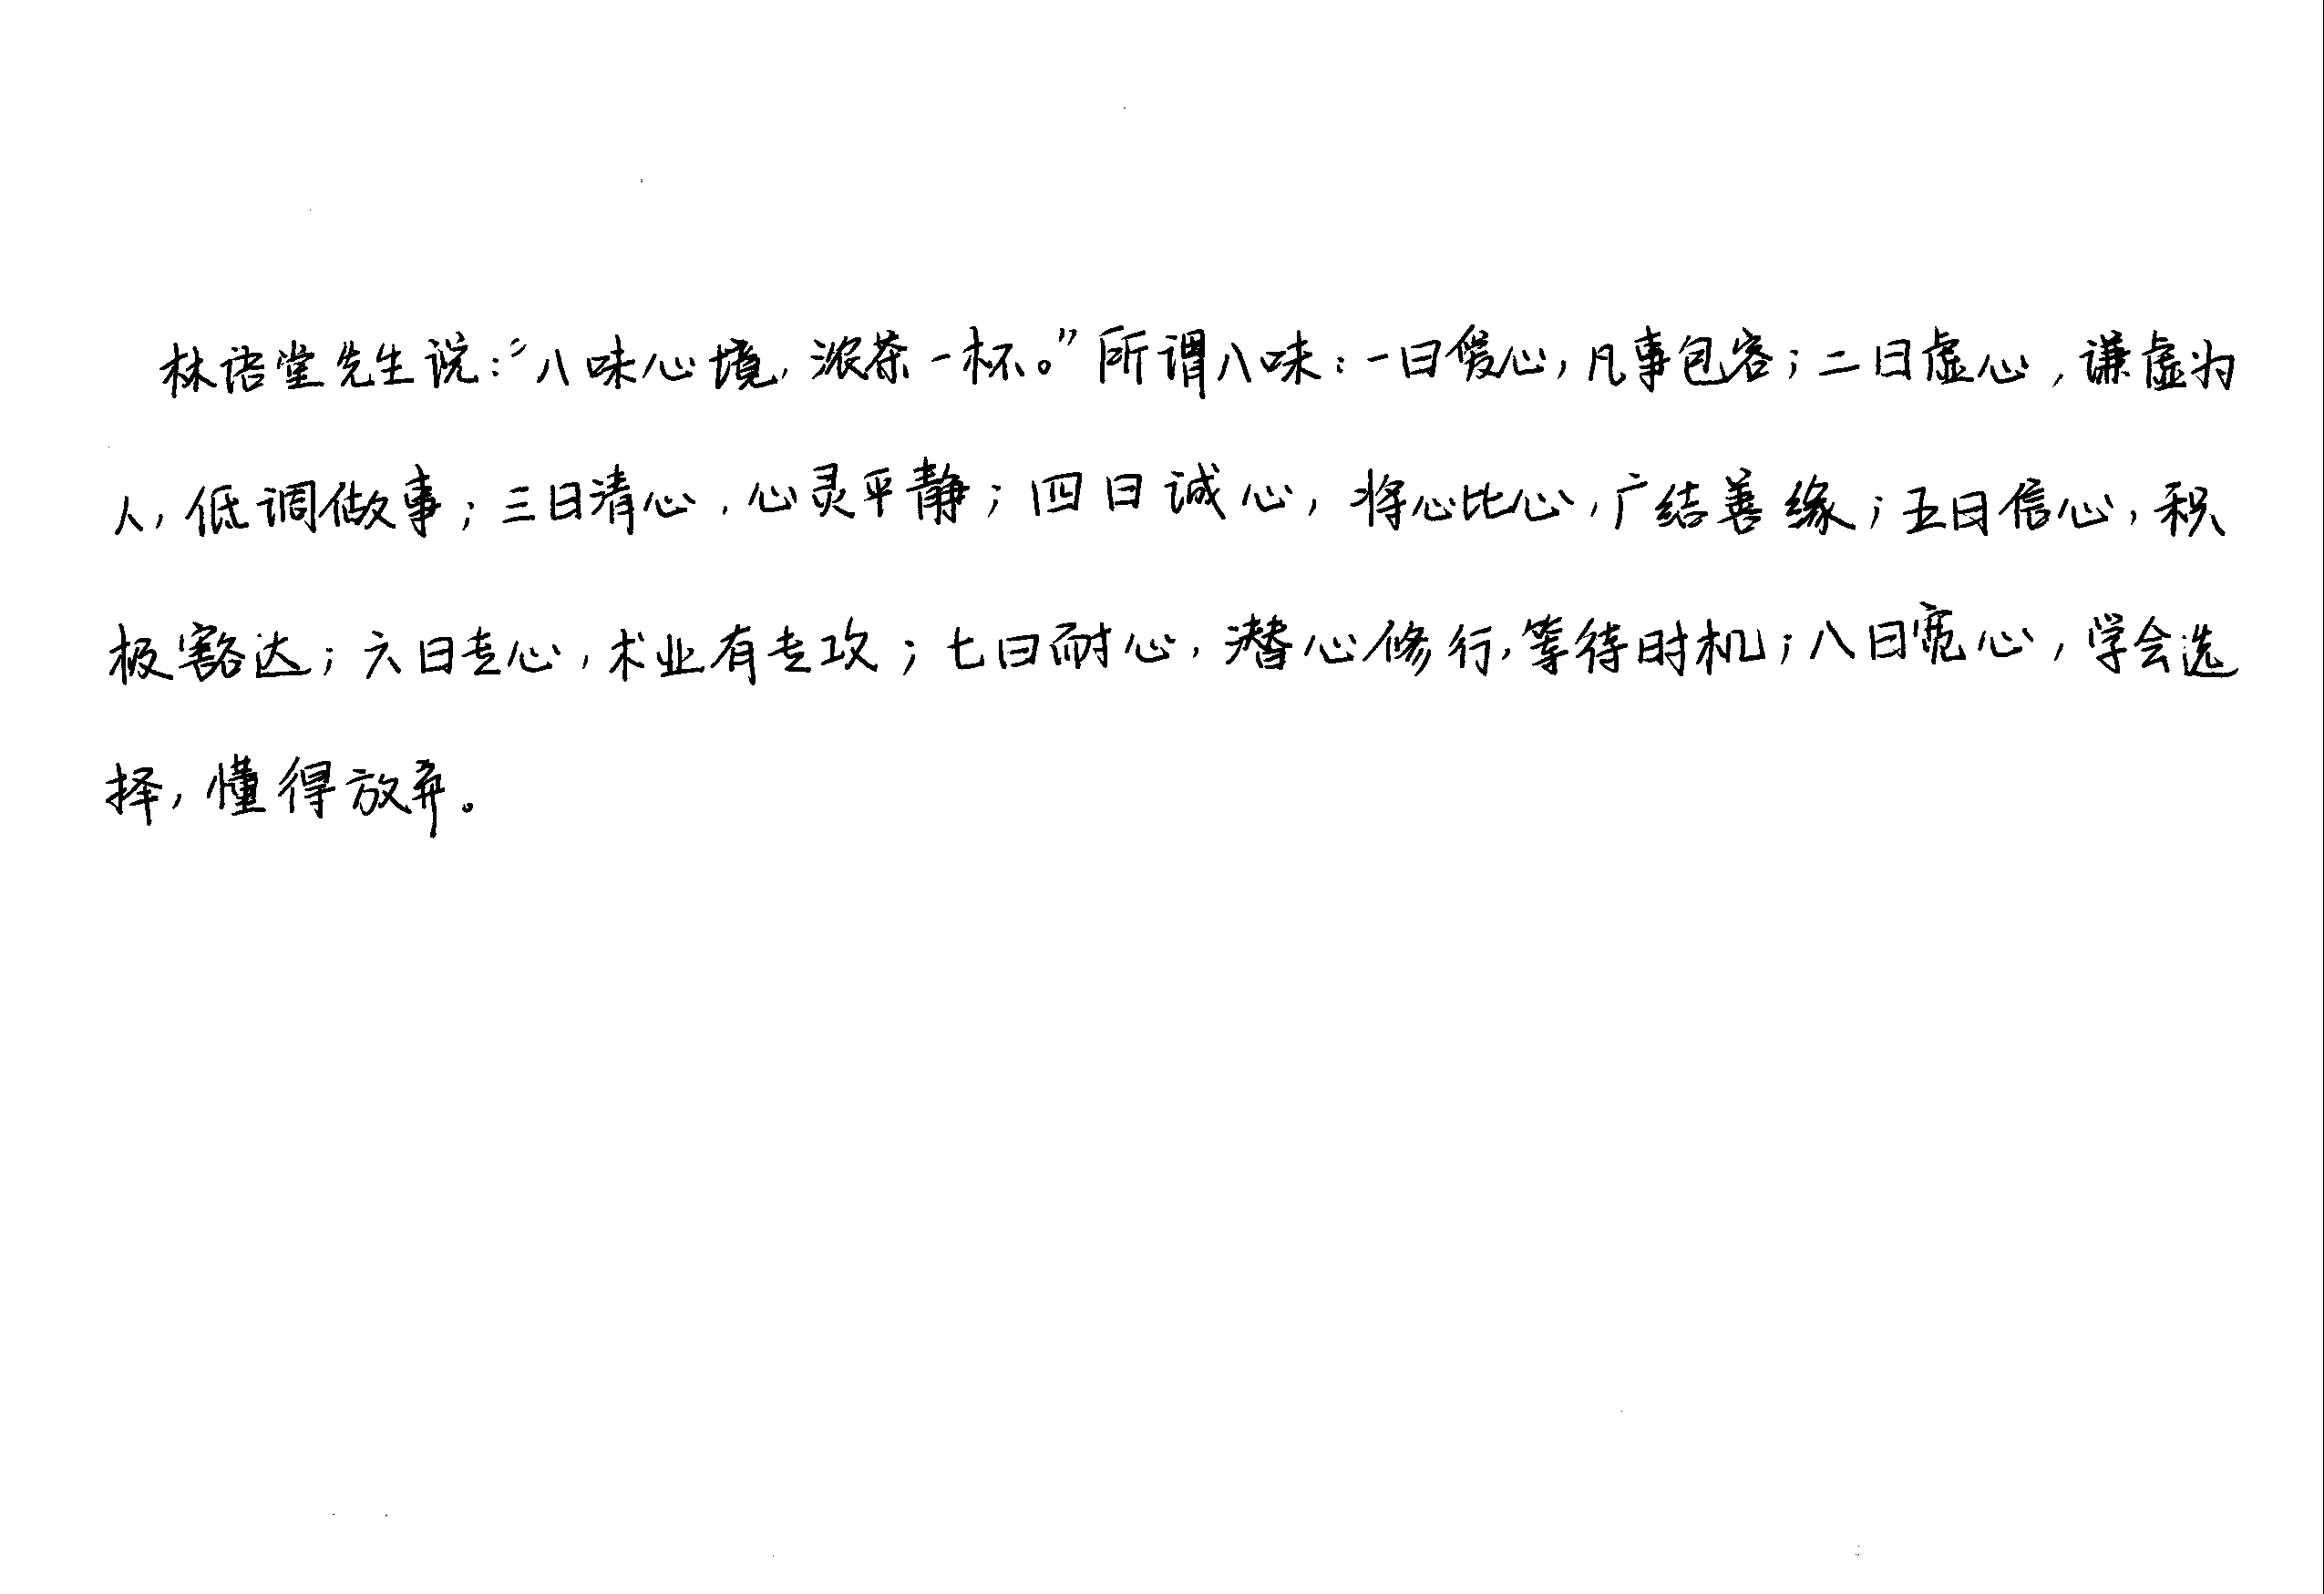 林语堂先生说：“八味心境，浓茶一杯。”所谓八味：一曰爱心，凡事包容；二曰虚心，谦虚为
人，低调做事；三曰清心，心灵平静；四曰诚心，将心比心，广结善缘；五曰信心，积
极豁达；六曰专心，术业有专攻；七曰耐心，潜心修行，等待时机；八曰宽心，学会选
择，懂得放弃。